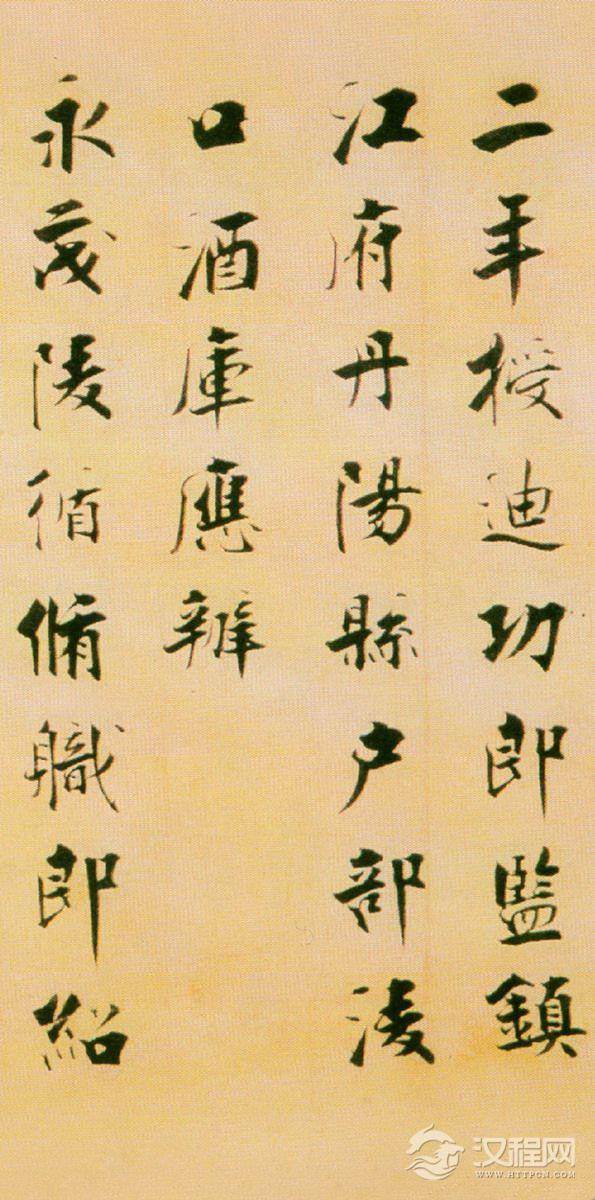 二年授迪功郎監鎮
江府丹陽縣户部淩
口酒庫應辦
永茂陵循脩職郎紹
汉程网
WWW.HTTPCN.COM